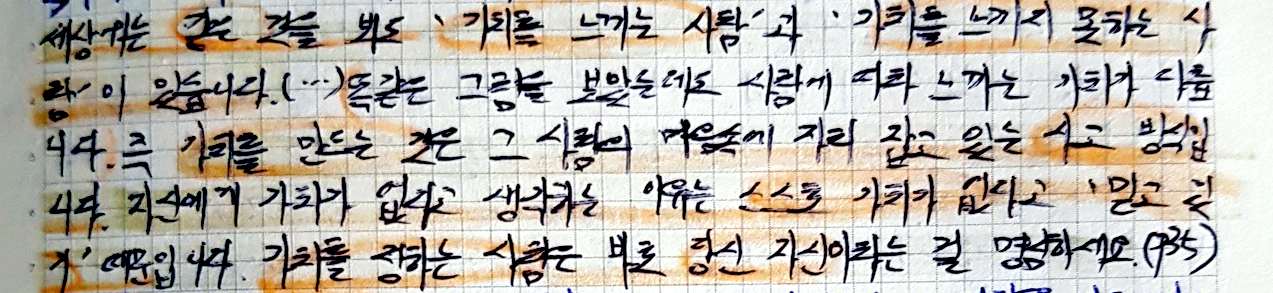 세상에는 같은 것을 봐도 '가치를 느끼는 사람'과 '가치를 느끼지 못하는 사
람'이 있습니다.(…)똑같은 그림을 보았는데도 사람에 따라 느끼는 가치가 다릅
니다. 즉 가치를 만드는 것은 그 사람의 마음속에 자리 잡고 있는 사고 방식입
니다. 자신에게 가치가 없다고 생각하는 이유는 스스로 가치가 없다고 '믿고 있
기' 때문입니다. 가치를 정하는 사람은 바로 당신 자신이라는 걸 명심하세요.(p35)